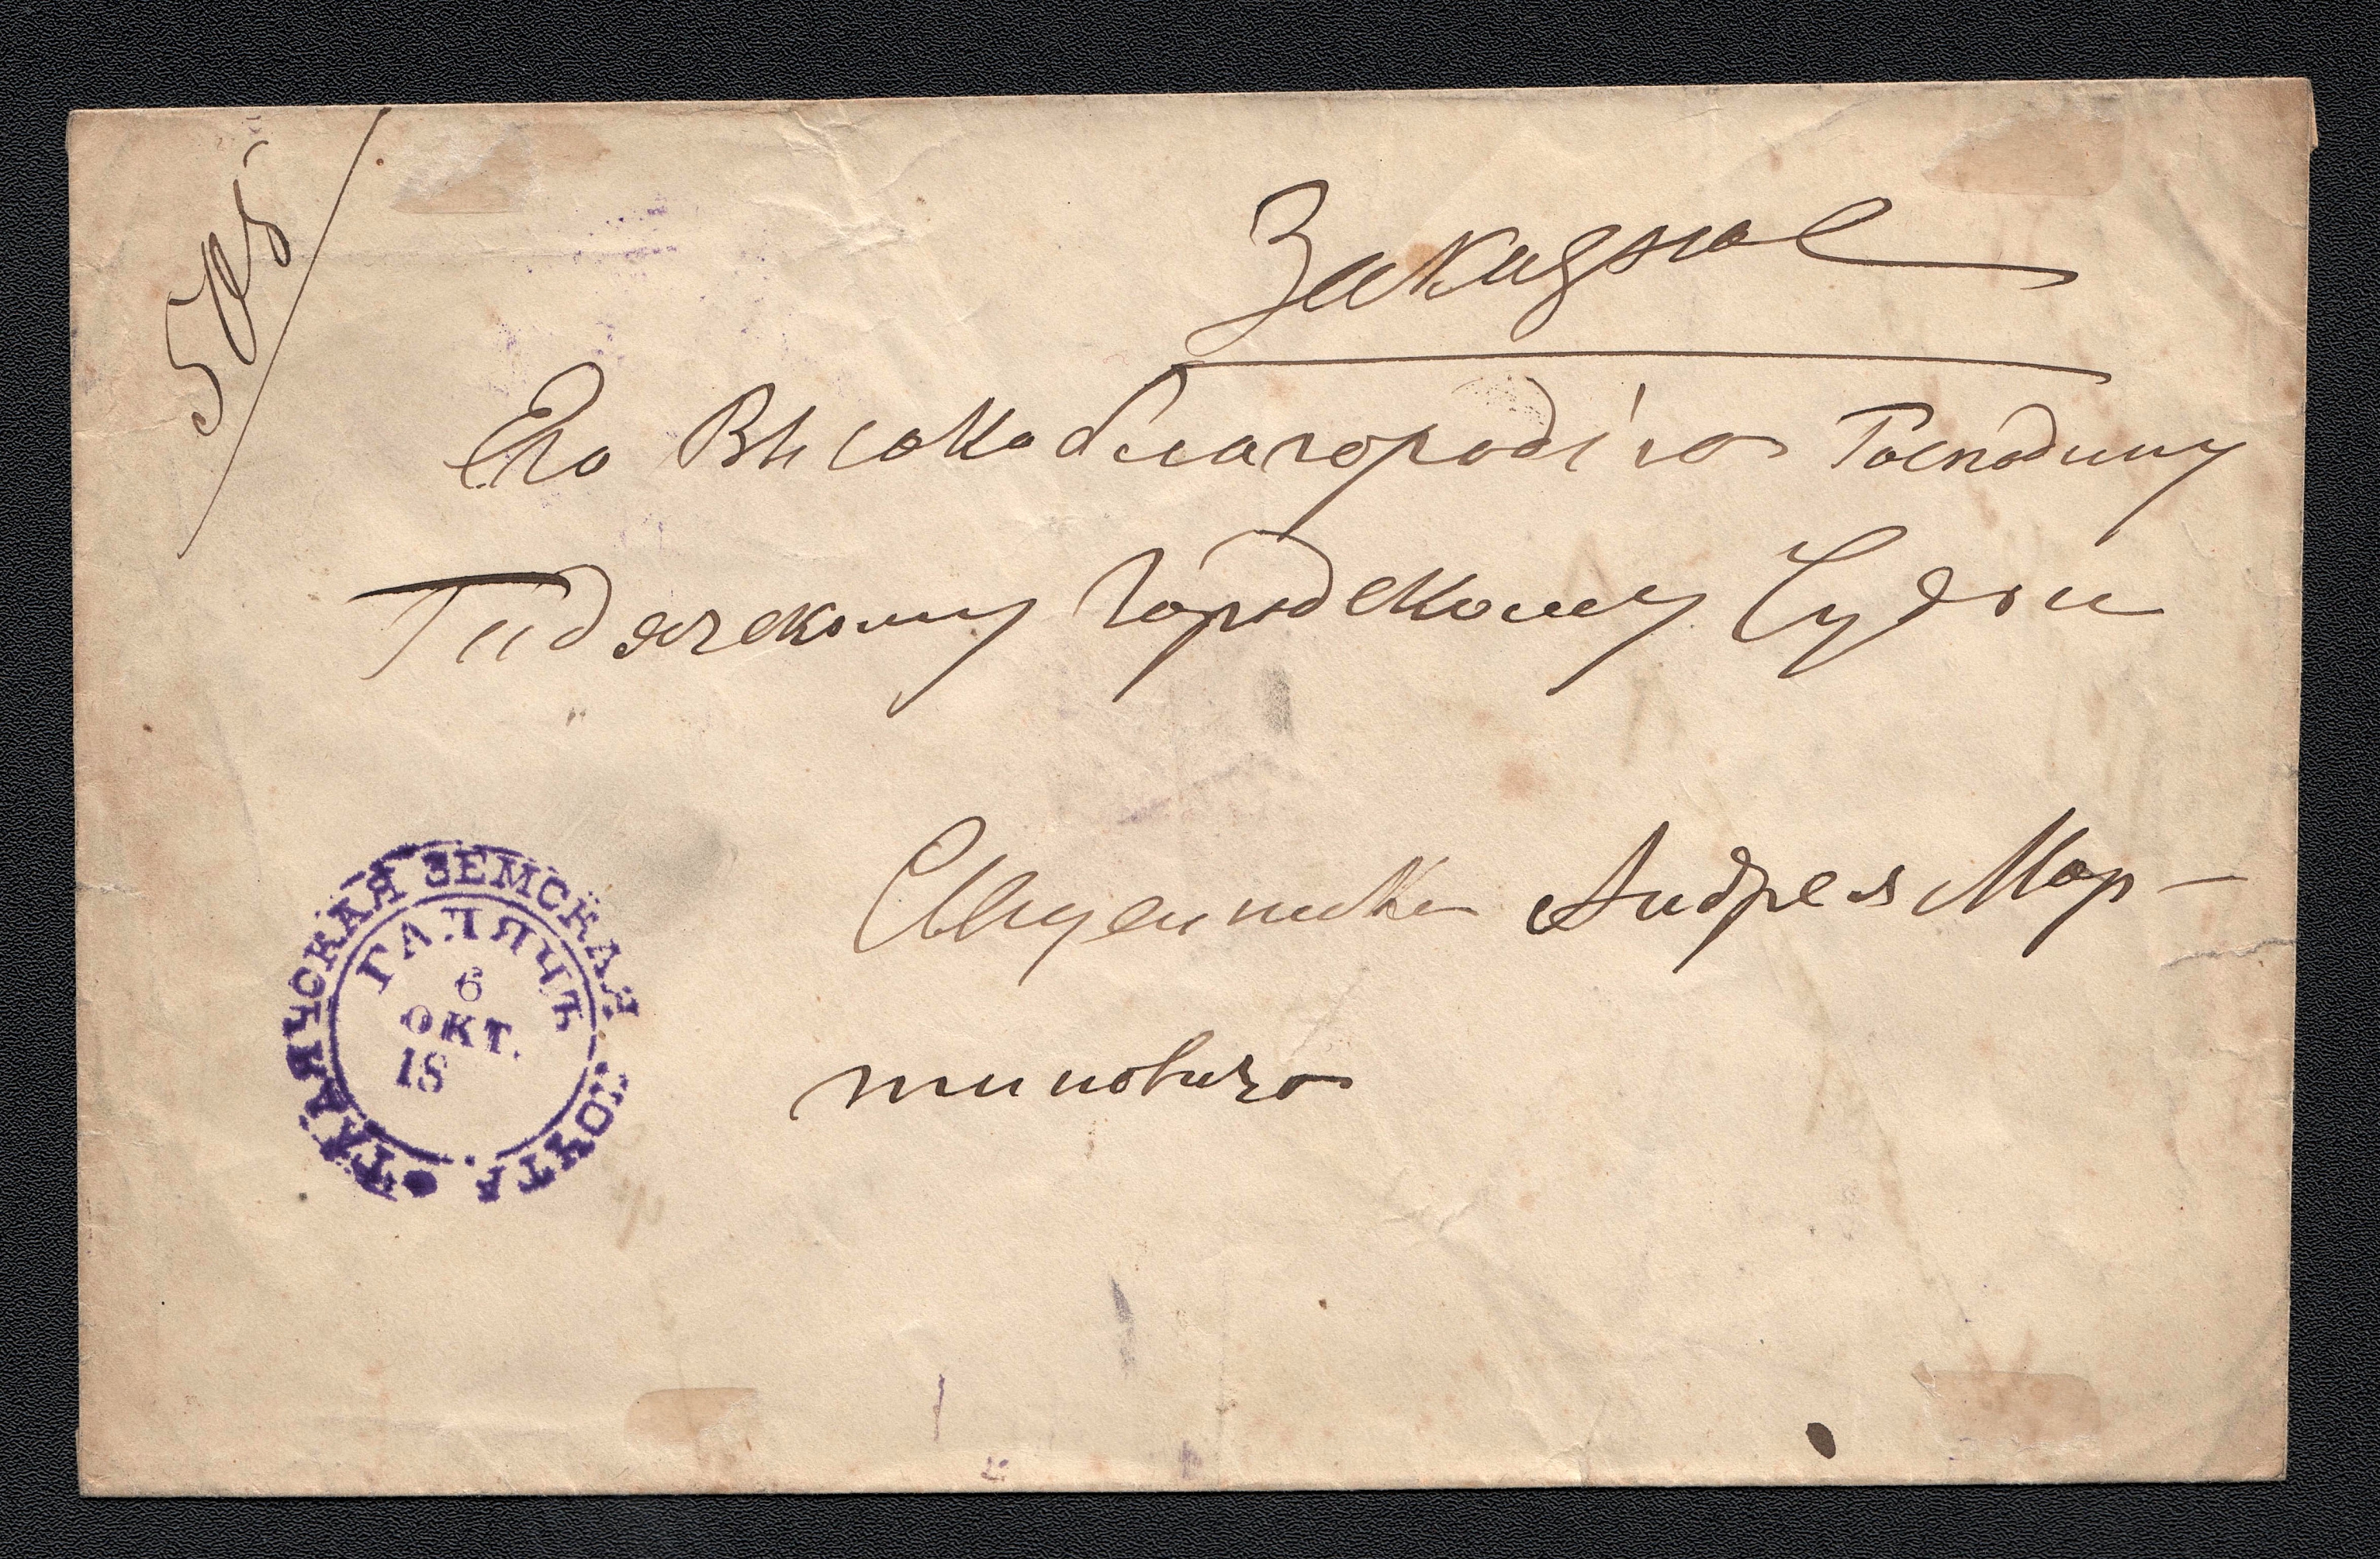 Заказное
Его Высокоблагородію Господину
Гадячскому Городскому Судьи
Священника Андрея Мар-
тиновича
ГАДЯЧСКАЯ ЗЕМСКАЯ ПОЧТА
ГАДЯЧЪ
6
ОКТ.
18